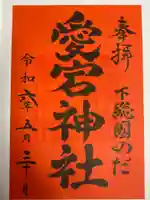 奉拝
下総國のだ
愛宕神社
令和六年五月三十日